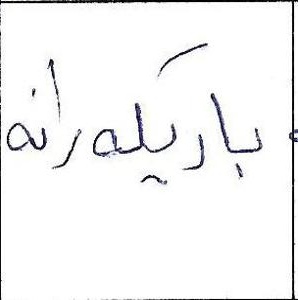 باریکەرانە